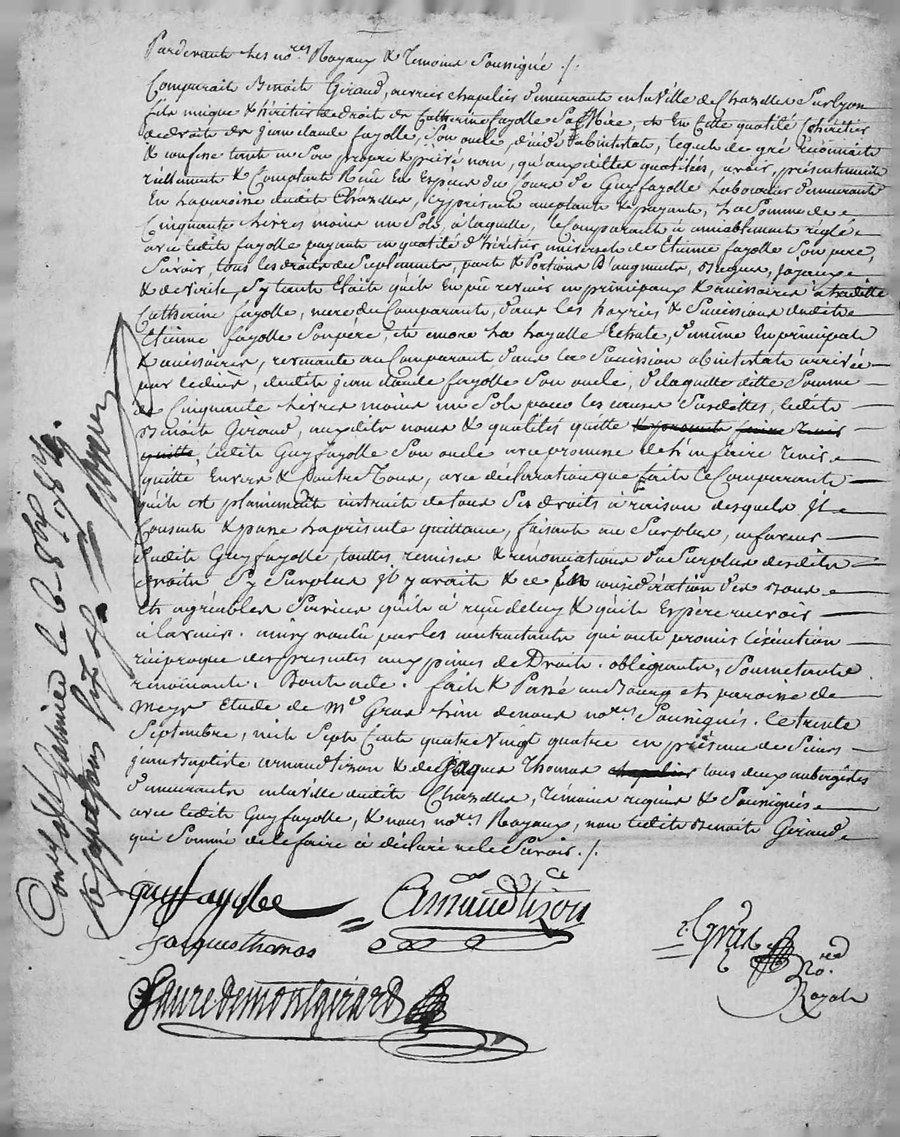 Pardevant Les no.res Royaux & Temoins Soussigné ./.
Comparait Benoit Giraud, ouvrier chapelier demeurant en la ville de Chazelles Sur Lyon
fils unique & héritier de droit de Catherine fayolle Sa Mère, et En Cette qualité héritier
de droit de jean claude fayolle, Son oncle, décédé abintestat, lequel de gré reconnait
& confesse tant en Son propre & privé nom, qu'auxdittes qualités, avoir, présentement
réellement & Comptant Reçu En Espèces du Cours de Guy fayolle Laboureur demeurant
En la paroisse dudit Chazelles, icy présent acceptant & payant, La Somme de
Cinquante Livres moins un Sol, à laquelle, le Comparant a amiablement réglé
avec ledit fayolle payant en qualité d'héritier universel de Etienne fayolle Son pere,
Savoir, tous les droits de Suplements, parts & Portions d'augments, Bagues, joyaux
& de virile, Sy tant Etait qu'il En put revenir en principaux & accessoires a ladite
Catherine fayolle, mere du Comparant, dans les hoyries & Successions dudit
Etienne fayolle Son père, et encore La Légitime Retrate, de même En principal
& accessoires, revenante au Comparant dans la Succession abintestate arrivée
par le décès, dudit jean claude fayolle Son oncle, de laquelle ditte Somme
de Cinquante Livres moins un Sol pour les causes Susdittes, ledit
Benoit Giraud, auxdits noms & qualités quitte & promet faire tenir
quitte, ledit Guy fayolle Son oncle avec promesse de l'en faire tenir
quitte Envers & Contre Tous, avec déclaration que fait le Comparant
qu'il est pleinement instruit de tous Ses droits à raison desquels Il
Consent & passe La présente quittance, faisant au Surplus, en faveur
dudit Guy fayolle, touttes remises & renonciations du Surplus desdits
droits Sy Surplus Il y avait & ce En considération des bons
et agréables Services qu'il à reçu de luy & qu'il Espère recevoir
à l'avenir. ainsy voulu par les contractants qui ont promis l'éxécution
réciproque des presentes aux peines de Droit. obligeants, Soumettants
renonceant. Dont acte. fait & Passé au Bourg et paroisse de
Meys Etude de Me Gras L'un de nous no.res Soussignés. le trente
Septembre, mille Sept Cent quatre vingt quatre en présence de Sieurs
jean Baptiste arnaud tizon & de Jaques Thomas chapelier tous deux aubergistes
demeurants en la ville dudit Chazelles, témoins requis & Soussignés
avec ledit Guy fayolle, & nous no.res Royaux, non ledit Benoit Giraud
qui Sommé de le faire à déclaré ne le Savoir. ./.
guy fayolle
Arnaud tizon
Jacques thomas
Gras
No.re
Royal
faure de montgirard
Con.lé à St galmier le 6 8bre 1784.